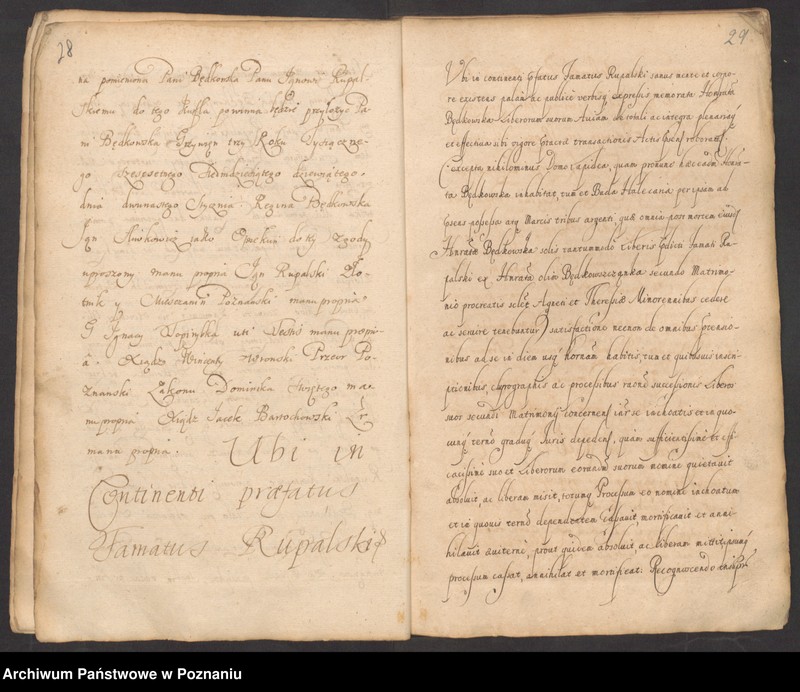 28
na pomieniona Pani Będkowska Panu Janowi Rupal-
skiemu do tego Kufla powinna będzie przyłożyć Pa-
ni Będkowska Grzywien trzy Roku Tysiącżne-
go Szescsetego Siedmdziesiątego dziewiątego
dnia dwunastego Stycznia Regina Będkowska
Jan jako Opiekun do tey Zgody
uproszony manu propria Jan Rupalski Zło-
tnik y Mieszczanin Poznanski manu propria
G Ignacy uti Testis manu propri-
a. Xiądz Wincenty Wronski Przeor Po-
znanski Zakonu Dominika Swiętego ma-
nu propria Xiądz Jacek Barrochowski
manu propria. Ubi in
Continenti præfatus
Famatus Rupalski
29.
Ubi in continenti pfatus Famatus Rupalski sanus mente et corpo-
re existens palam ac publicè verbisq expressis memorata Honrata
Będkowska Liberorum suorum Aviam de totali ac integra plenariaq
et effectiva sibi vigore transactionis Actis roborata
(Excepta nihilominus Domo Lapidea, quam pronunc hæc eadem Honra-
ta Będkowska inhabitat, tum et Buda Halecana per ipsam ad
possessa atq Marcis tribus argenti, quæ omnia post mortem eiusd
Honrata Będkowska solis tantummodo Liberis Famati Ru-
palski ex Honrata olim Będkowszczanka secundo Matrimo-
nio procreatis Agneti et Theresiæ Minorennibus cedere
ac servire tenebuntur) satisfactione necnon de omnibus prætensio-
nibus ad se in diem usq hodiernam habitis, tum et quibusvis inscri-
ptionibus, chyrographis ac processibus ratione successionis Liberos
suos secundi Matrimonij concernens iure inchoatis et in quo-
cunq termo graduq Juris quam sufficientissime et effi-
cacissime suo et Liberorum eorundem suorum nomine quietavit
absolvit, ac liberam misit, totumq Processum eo nomine inchoatum
et in quovis termo dependentem cassavit, mortificavit et anni-
hilavit æviterne, prout quidem absolvit ac liberam mittit ipsumq
processum cassat, annihilat et mortificat: Recognoscendo
Archiwum Państwowe w Poznaniu